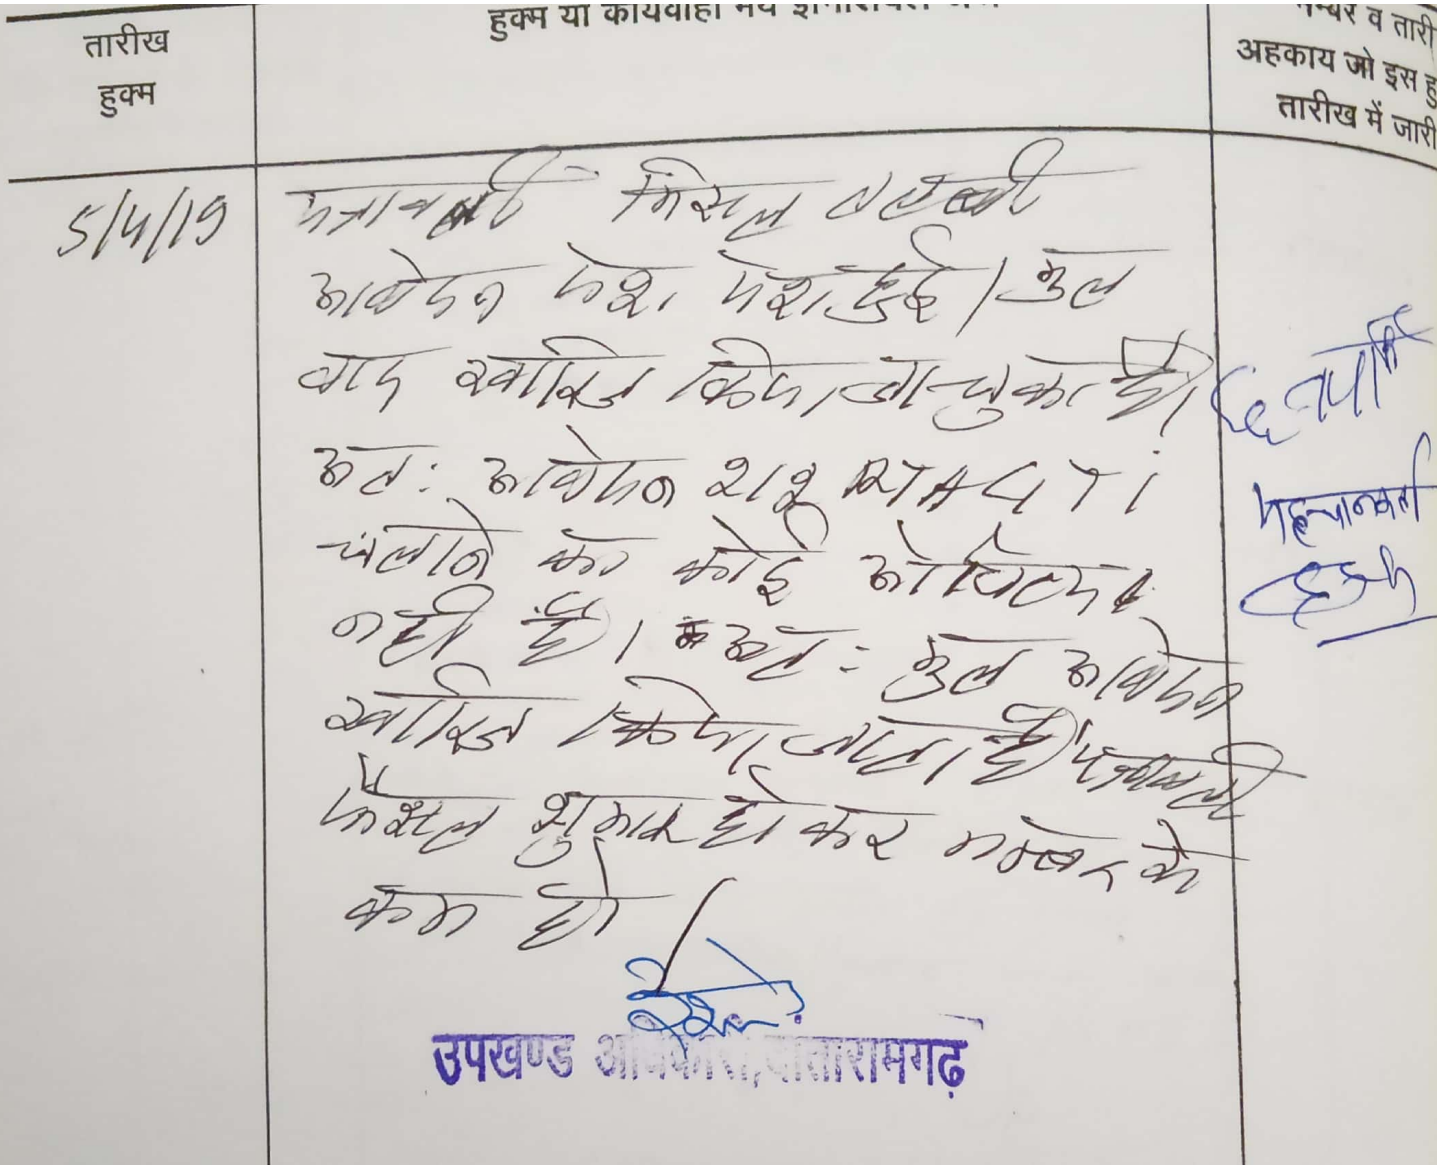 तारीख
हुक्म
हुक्म या कार्यवाही मय
व तारी
अहकाय जो इस हु
तारीख में जारी
5/4/19
पत्रावली मिसल तलबी
आवेदन पेश पेश हुई। मुल
वाद खारिज किया जा चुका है।
अतः आवेदन RTACT
चलाने का कोई औचित्य
नही है। अतः मुल आवेदन
खारिज किया जाता है पत्रावली
फैसल शुमार हो कर नम्बर से
कम हो।
पहचानकर्ता
उपखण्ड अधिकारी, दांतारामगढ़